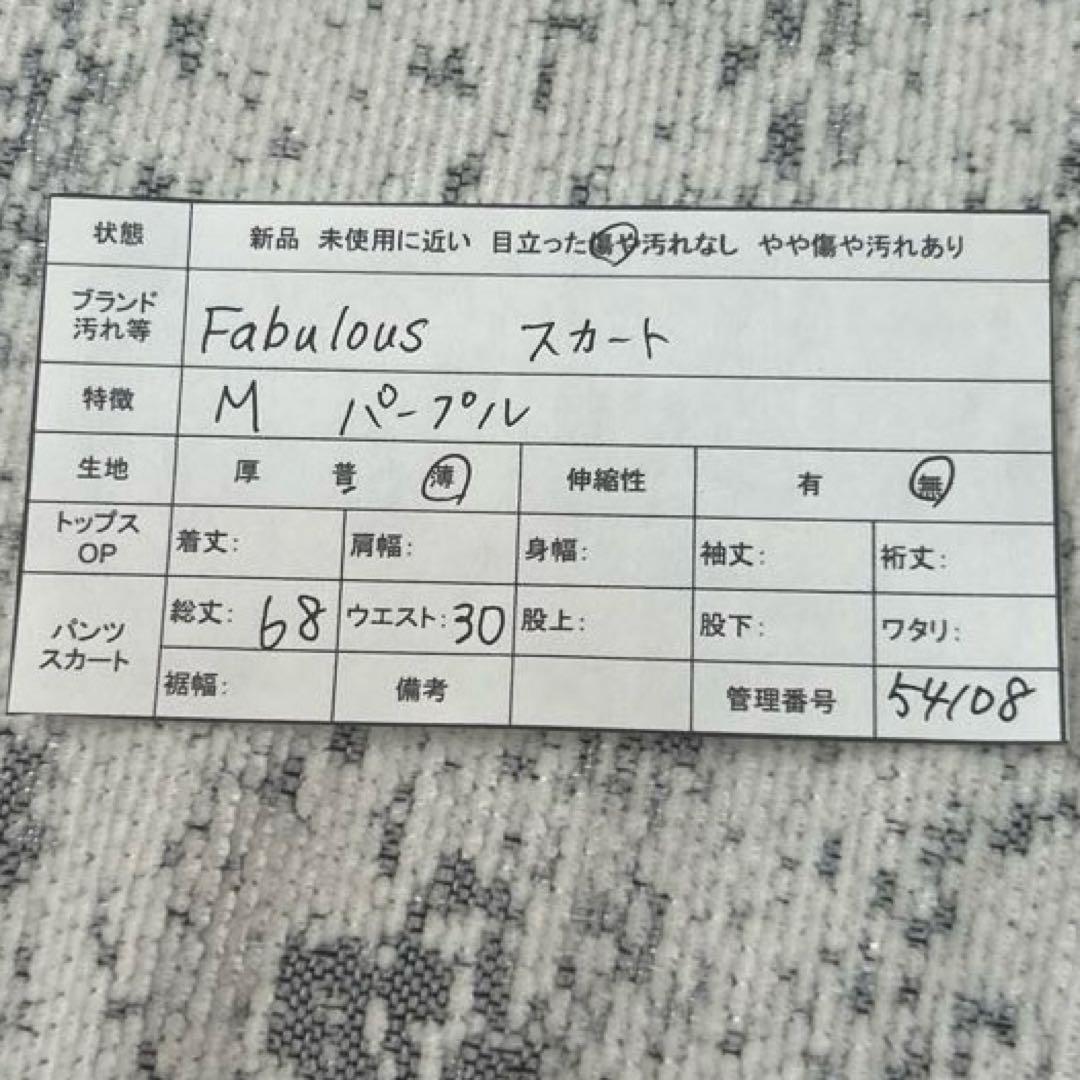 状態 新品 未使用に近い 目立った傷や汚れなし やや傷や汚れあり
ブランド
汚れ等 Fabulous スカート
特徴 M パープル
生地 厚 普 薄 伸縮性 有 無
トップス
OP 着丈: 肩幅: 身幅: 袖丈: 裄丈:
パンツ
スカート 総丈: 68 ウエスト: 30 股上: 股下: ワタリ:
裾幅: 備考 管理番号 54108